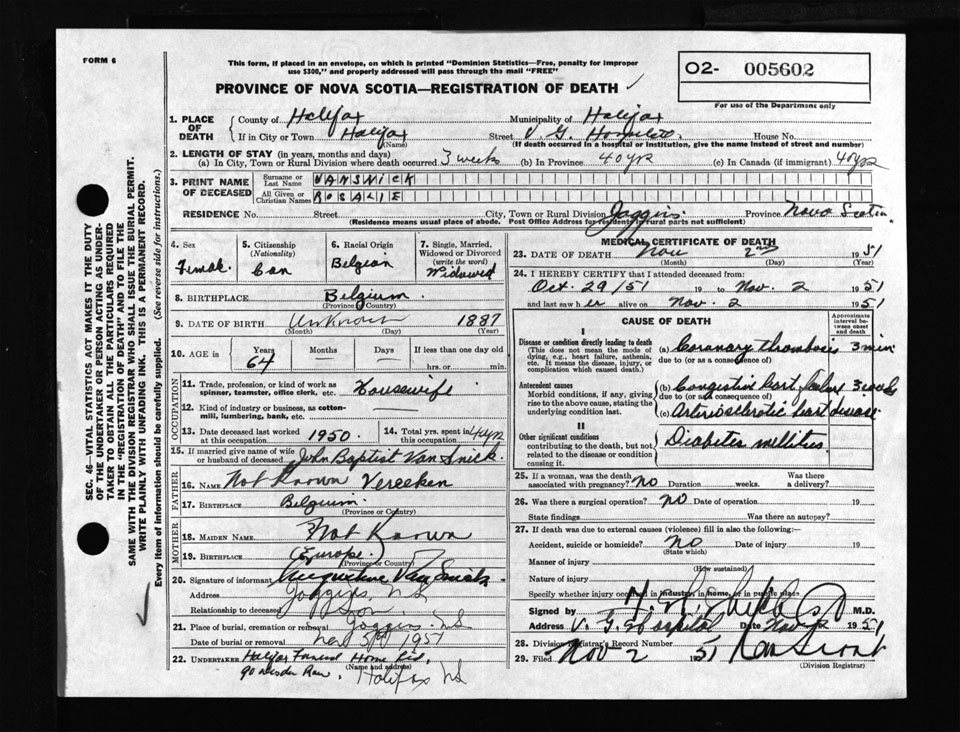 FORM 6
This form, if placed in an envelope, on which is printed "Dominion Statistics—Free, penalty for improper
use $300," and properly addressed will pass through the mail "FREE"
PROVINCE OF NOVA SCOTIA—REGISTRATION OF DEATH
02- 005602
For use of the Department only
1. PLACE OF DEATH
County of Halifax Municipality of Halifax
If in City or Town Halifax Street V. G. House No.
(Name) (If death occurred in a hospital or institution, give the name instead of street and number)
2. LENGTH OF STAY (in years, months and days)
(a) In City, Town or Rural Division where death occurred 3 weeks (b) In Province 40 yrs (c) In Canada (if immigrant) 40 yrs
3. PRINT NAME OF DECEASED
Surname or Last Name VANSNICK
All Given or Christian Names ROSALIE
RESIDENCE No. Street City, Town or Rural Division Joggins Province Nova Scotia
(Residence means usual place of abode. Post Office Address for residents in rural parts not sufficient)
4. Sex Female
5. Citizenship (Nationality) Can
6. Racial Origin Belgian
7. Single, Married, Widowed or Divorced (write the word) Widowed
8. BIRTHPLACE Belgium
(Province or Country)
9. DATE OF BIRTH Unknown 1887
(Month) (Day) (Year)
10. AGE in Years Months Days If less than one day old
64 — — hrs. or min.
OCCUPATION
11. Trade, profession, or kind of work as spinner, teamster, office clerk, etc. Housewife
12. Kind of industry or business, as cotton-mill, lumbering, bank, etc.
13. Date deceased last worked at this occupation 1950.
14. Total yrs. spent in this occupation 40 yrs
15. If married give name of wife or husband of deceased John Baptist Van Snick.
FATHER
16. NAME Not Known Vereeken
17. BIRTHPLACE Belgium
(Province or Country)
MOTHER
18. MAIDEN NAME Not Known
19. BIRTHPLACE (Europe)
(Province or Country)
20. Signature of informant Augustine Van Snick
Address Joggins, NS
Relationship to deceased Son
21. Place of burial, cremation or removal Joggins NS
Date of burial or removal Nov 5th 1951
22. UNDERTAKER Halifax Funeral Home Ltd.
(Name and address)
Halifax NS
MEDICAL CERTIFICATE OF DEATH
23. DATE OF DEATH Nov 2nd 1951
(Month) (Day) (Year)
24. I HEREBY CERTIFY that I attended deceased from:
Oct. 29/51 19 to Nov. 2 1951
and last saw her alive on Nov. 2 1951
CAUSE OF DEATH
Approximate interval between onset and death
I
Disease or condition directly leading to death
(This does not mean the mode of dying, e.g., heart failure, asthenia, etc. It means the disease, injury, or complication which caused death.)
(a) Coronary thrombosis 3 min
due to (or as a consequence of)
Antecedent causes
Morbid conditions, if any, giving rise to the above cause, stating the underlying condition last.
(b) Congestive heart failure 3 weeks
due to (or as a consequence of)
(c) Arteriosclerotic heart disease
II
Other significant conditions
contributing to the death, but not related to the disease or condition causing it.
Diabetes mellitus
25. If a woman, was the death associated with pregnancy? No Duration weeks. Was there a delivery?
26. Was there a surgical operation? No Date of operation 19
State findings Was there an autopsy?
27. If death was due to external causes (violence) fill in also the following:
Accident, suicide or homicide? No Date of injury 19
(State which)
Manner of injury
(How sustained)
Nature of injury
Specify whether injury occurred in industry, in home, or in public place
Signed by M.D.
Address V. G. Hospital Date Nov 2 1951
28. Division Registrar's Record Number
29. Filed Nov 2 1951
(Division Registrar)
SEC. 46—VITAL STATISTICS ACT MAKES IT THE DUTY
OF THE UNDERTAKER OR PERSON ACTING AS UNDER-
TAKER TO OBTAIN ALL THE PARTICULARS REQUIRED
IN THE "REGISTRATION OF DEATH" AND TO FILE THE
SAME WITH THE DIVISION REGISTRAR WHO SHALL ISSUE THE BURIAL PERMIT.
WRITE PLAINLY WITH UNFADING INK. THIS IS A PERMANENT RECORD.
Every item of information should be carefully supplied. (See reverse side for instructions.)